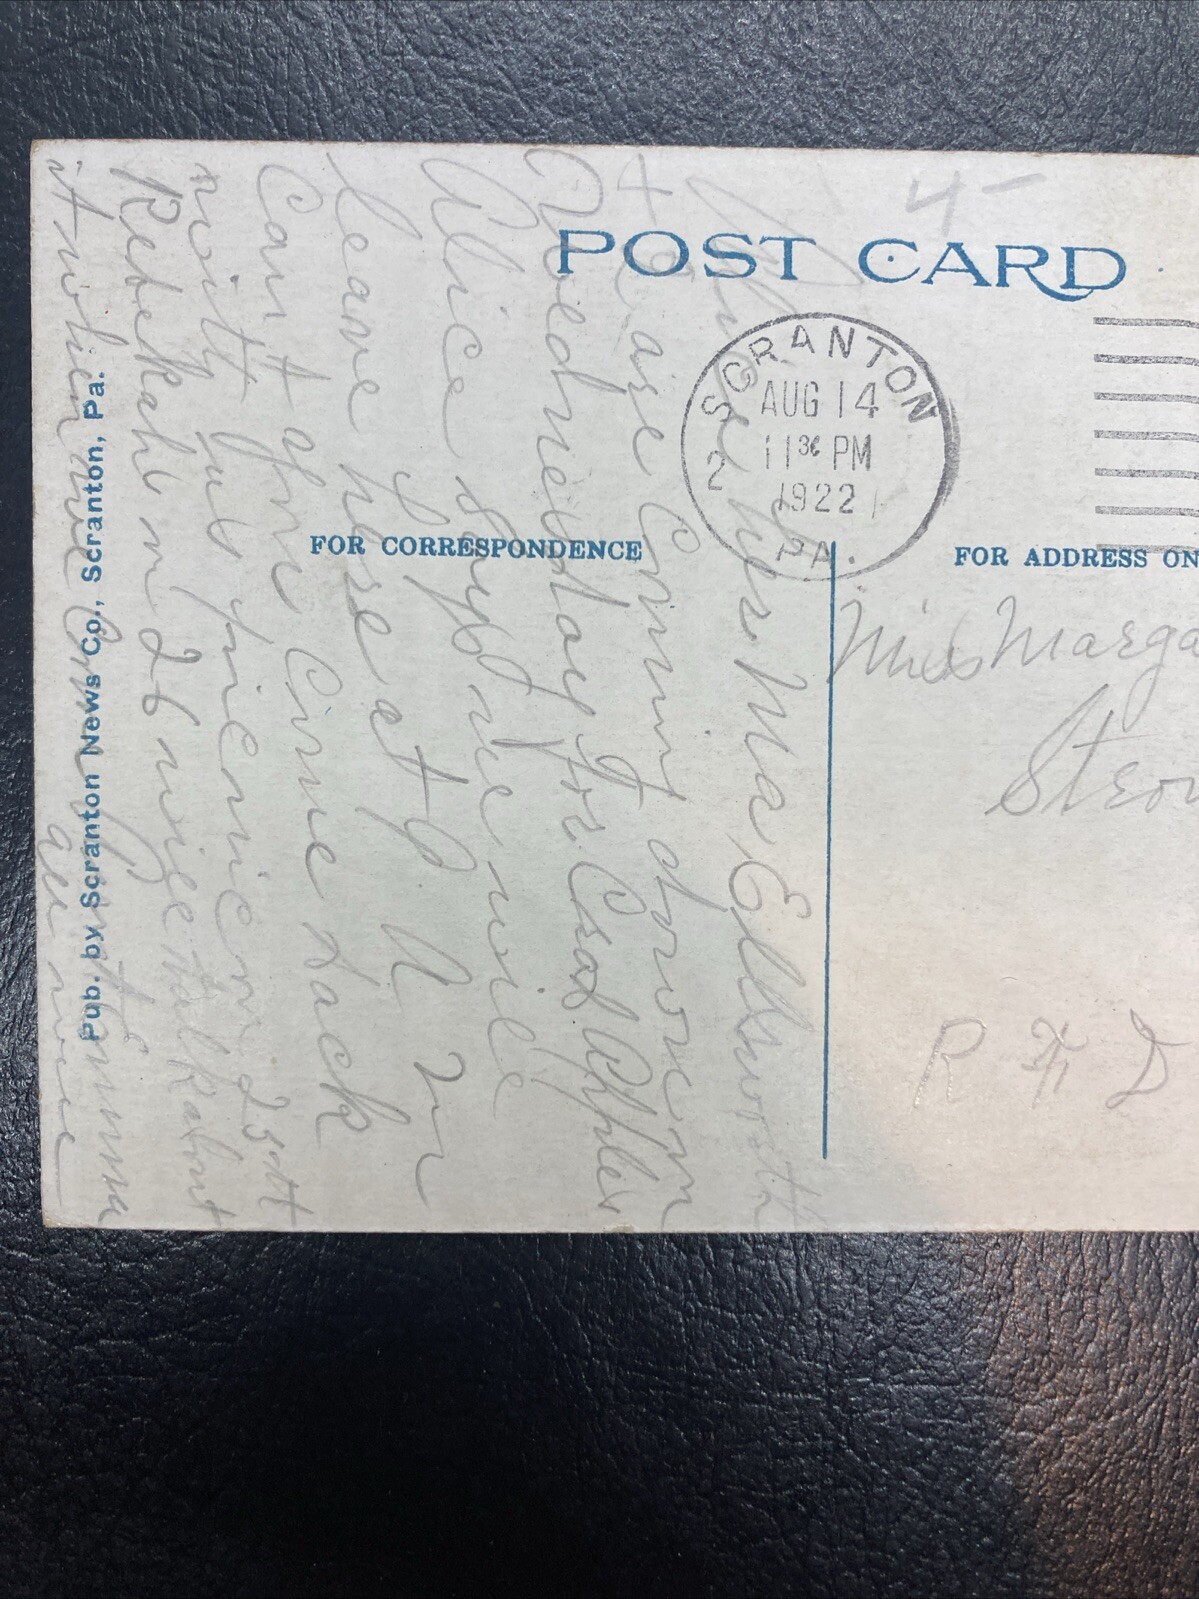 4-
POST CARD
SCRANTON
AUG 14
11 30 PM
1922
2
PA.
FOR CORRESPONDENCE
FOR ADDRESS ON
Miss Marga
Stro
R F D
Mr &
Mrs Ma Ellsworth
are Coming down
Wednesday for Crab Apples
Alice & we will
leave here at 9 A m
Can't you Come back
with us picnic on 25th
Rebekahs on 26
it when we Come
Emma
Pub. by Scranton News Co., Scranton, Pa.